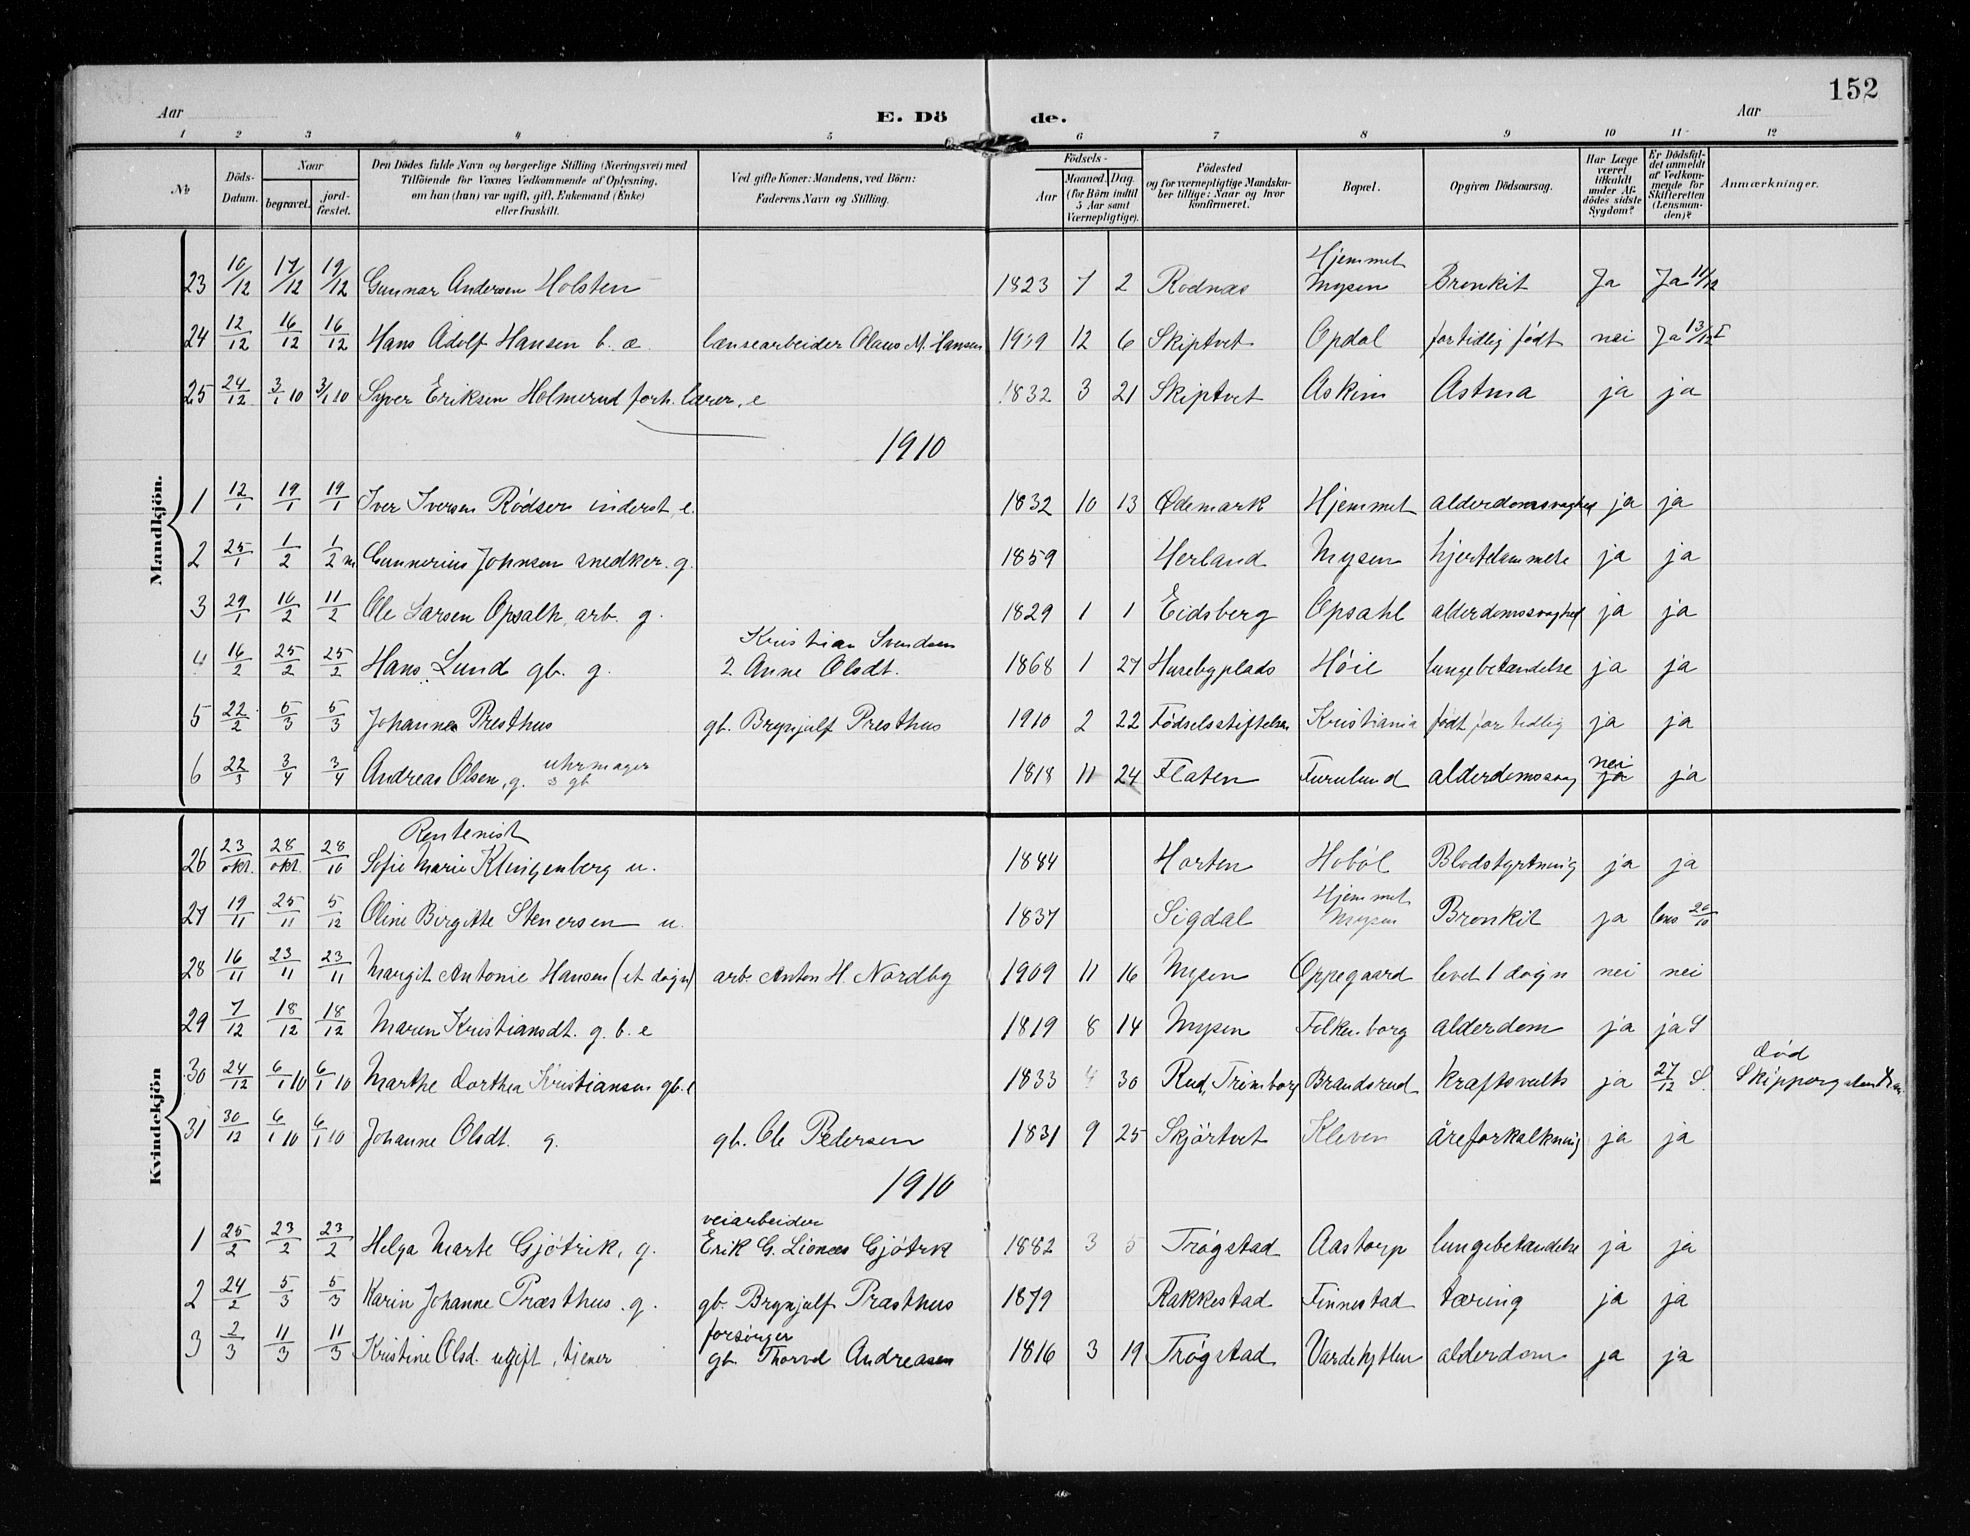 152
Aar E. Dö de. Aar
1 2 3 4 5 6 7 8 9 10 11 12
No Döds-Datum. Naar begravet. jord-fæstet. Den Dödes fulde Navn og borgerlige Stilling (Næringsvei) med Tilföiende for Voxnes Vedkommende af Oplysning, om han (hun) var ugift, gift, Enkemand (Enke) eller fraskilt. Ved gifte Koner: Mandens, ved Börn: Faderens Navn og Stilling. Födsels- Aar Maaned. Dag (for Börn indtil 5 Aar samt Værnepligtige). Födested og for værnepligtige Mandskaber tillige: Naar og hvor konfirmeret. Bopæl. Opgiven Dödsaarsag. Har Læge været tilkaldt under Afdödes sidste Sygdom? Er Dödsfaldet anmeldt af Vedkommende for Skifteretten (Lensmanden)? Anmærkninger.
Mandkjön.
23 10/12 17/12 19/12 Gunnar Andersen Holsten 1823 7 2 Rodnæs Hjemmet Mysen Bronkit Ja Ja 11/12
24 12/12 16/12 16/12 Hans Adolf Hansen b. æ. lænsearbeider Olaus M. Hansen 1909 12 6 Skiptvet Opdal for tidlig født nei Ja 13/12
25 24/12 3/1 10 3/1 10 Syver Eriksen Holmerud forh. lærer, e 1832 3 21 Skiptvet Askim Astma ja ja
1910
1 12/1 19/1 19/1 Iver Iversen Rødsen inderst, e. 1832 10 13 Ødemark Hjemmet alderdomssvaghed ja ja
2 25/1 1/2 1/2 Gunnerius Johnsen snedker. g. 1859 Herland Mysen hjertelammelse ja ja
3 29/1 10/2 11/2 Ole Larsen Opsalh, arb. g. 1829 1 1 Eidsberg Opsahl alderdomssvaghed ja ja
4 16/2 25/2 25/2 Hans Lund gb. g. Kristian Svendsen 2 Anne Olsdt. 1868 1 27 Husebyplads Høie lungebetændelse ja ja
5 22/2 5/3 5/3 Johannes Presthus gb. Brynjulf Presthus 1910 2 22 Fødselsstiftelsen Kristiania født for tidlig ja ja
6 22/3 3/4 3/4 Andreas Olsen, g. uhrmager gb 1818 11 24 Flaten Furulund alderdomssvag nei ja ja
Kvindekjön
26 23/okt. 28/okt. 28/10 Rentenist Sofie Marie Klingenberg u. 1884 Horten Hobøl Blodstyrtning ja ja
27 19/11 25/11 5/12 Oline Birgitte Stenersen u. 1837 Sigdal Hjemmet Mysen Bronkit ja lens 20/10
28 16/11 23/11 23/11 Margit Antonie Hansen (et døgn) arb. Anton H. Nordby 1909 11 16 Mysen Oppegaard levet 1 døgn nei nei
29 7/12 18/12 18/12 Maren Kristiansdt. g. b. e 1819 8 14 Mysen Folkenborg alderdom ja ja S
30 24/12 6/1 10 6/1 10 Marthe Dorthea Kristiansen gb. e 1833 4 30 Rud, Trømborg Brandsrud kraftsvults ja 27/12 S. død
31 30/12 6/1 10 6/1 10 Johanne Olsdt. g. gb. Ole Pedersen 1831 9 25 Skjørtvet Kleven åreforkalkning ja ja
1910
1 25/2 23/2 23/2 Helga Marte Gjøtrik, g. veiarbeider Erik G. Lionæs Gjøtrk 1882 3 5 Trøgstad Aastorp lungebetændelse ja ja
2 24/2 5/3 5/3 Karin Johanne Præsthus. g. gb. Brynjulf Præsthus 1879 Rakkestad Finnestad tæring ja ja
3 2/3 11/3 11/3 Kristine Olsd. ugift, tjener forsørger gb. Thorvd Andreasen 1816 3 19 Trøgstad Vardehytten alderdom ja ja